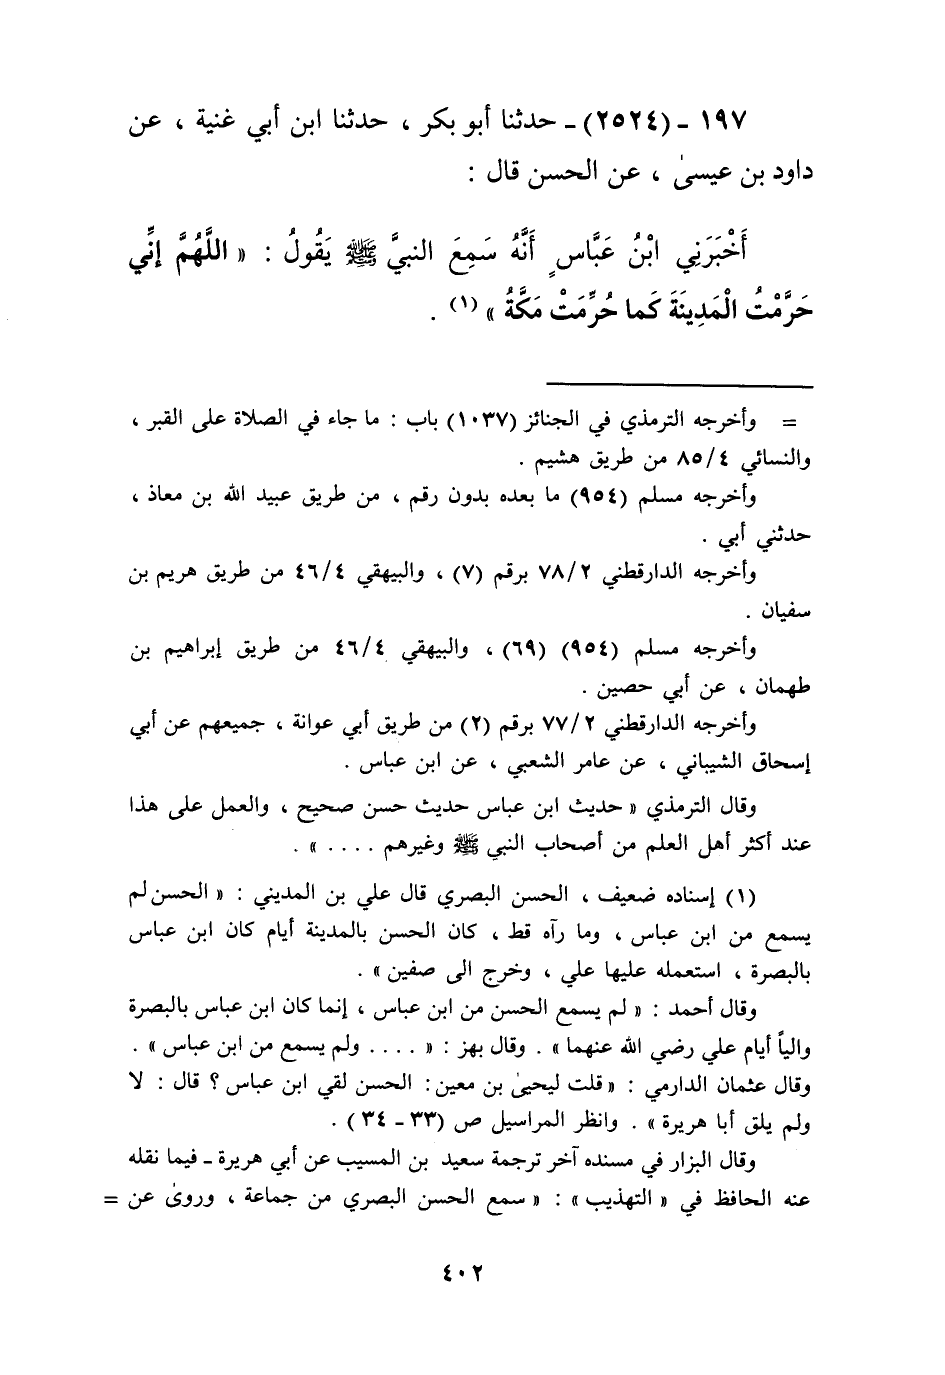 ١٩٧ ـ (٢٥٢٤) ـ حدثنا أبو بكر ، حدثنا ابن أبي غنية ، عن
داود بن عيسىٰ ، عن الحسن قال :
أَخْبَرَنِي ابْنُ عَبَّاسٍ أَنَّهُ سَمِعَ النبيَّ ﷺ يَقُولُ : « اللَّهُمَّ إنِّي
حَرَّمْتُ الْمَدِينَةَ كَما حُرِّمَتْ مَكَّةُ » (١) .
= وأخرجه الترمذي في الجنائز (١٠٣٧) باب : ما جاء في الصلاة على القبر ،
والنسائي ٨٥/٤ من طريق هشيم .
وأخرجه مسلم (٩٥٤) ما بعده بدون رقم ، من طريق عبيد الله بن معاذ ،
حدثني أبي .
وأخرجه الدارقطني ٧٨/٢ برقم (٧) ، والبيهقي ٤٦/٤ من طريق هريم بن
سفيان .
وأخرجه مسلم (٩٥٤) (٦٩) ، والبيهقي ٤٦/٤ من طريق إبراهيم بن
طهمان ، عن أبي حصين .
وأخرجه الدارقطني ٧٧/٢ برقم (٢) من طريق أبي عوانة ، جميعهم عن أبي
إسحاق الشيباني ، عن عامر الشعبي ، عن ابن عباس .
وقال الترمذي « حديث ابن عباس حديث حسن صحيح ، والعمل على هذا
عند أكثر أهل العلم من أصحاب النبي ﷺ وغيرهم .... » .
(١) إسناده ضعيف ، الحسن البصري قال علي بن المديني : « الحسن لم
يسمع من ابن عباس ، وما رآه قط ، كان الحسن بالمدينة أيام كان ابن عباس
بالبصرة ، استعمله عليها علي ، وخرج الى صفين » .
وقال أحمد : « لم يسمع الحسن من ابن عباس ، إنما كان ابن عباس بالبصرة
والياً أيام علي رضي الله عنهما » . وقال بهز : « .... ولم يسمع من ابن عباس » .
وقال عثمان الدارمي : « قلت ليحيىٰ بن معين : الحسن لقي ابن عباس ؟ قال : لا
ولم يلق أبا هريرة » . وانظر المراسيل ص (٣٣ ـ ٣٤ ) .
وقال البزار في مسنده آخر ترجمة سعيد بن المسيب عن أبي هريرة ـ فيما نقله
عنه الحافظ في « التهذيب » : « سمع الحسن البصري من جماعة ، وروىٰ عن =
٤٠٢